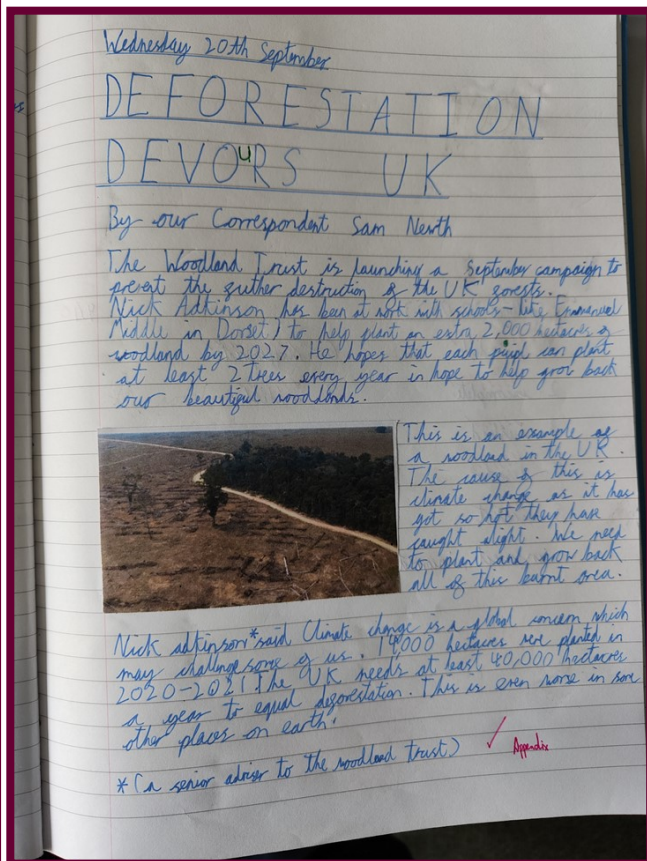 Wednesday 20th September
DEFORESTATION
DEVOURS UK
By our Correspondent Sam Newth
The Woodland Trust is launching a September campaign to
prevent the further destruction of the UK forests.
Nick Adkinson has been at work with schools - like Emmanuel
Middle in Dorset) to help plant an extra 2,000 hectacres of
woodland by 2027. He hopes that each pupil can plant
at least 2 trees every year in hope to help grow back
our beautiful woodlands.
This is an example of
a woodland in the UK.
The cause of this is
climate change as it has
got so hot they have
caught alight. We need
to plant and grow back
all of this burnt area.
Nick adkinson*said Climate change is a global concern which
may challenge some of us. 14000 hectacres were planted in
2020-2021. The UK needs at least 40,000 hectacres
a year to equal deforestation. This is even worse in some
other places on earth!
*(a senior adviser to the woodland trust)
✓ Appendix